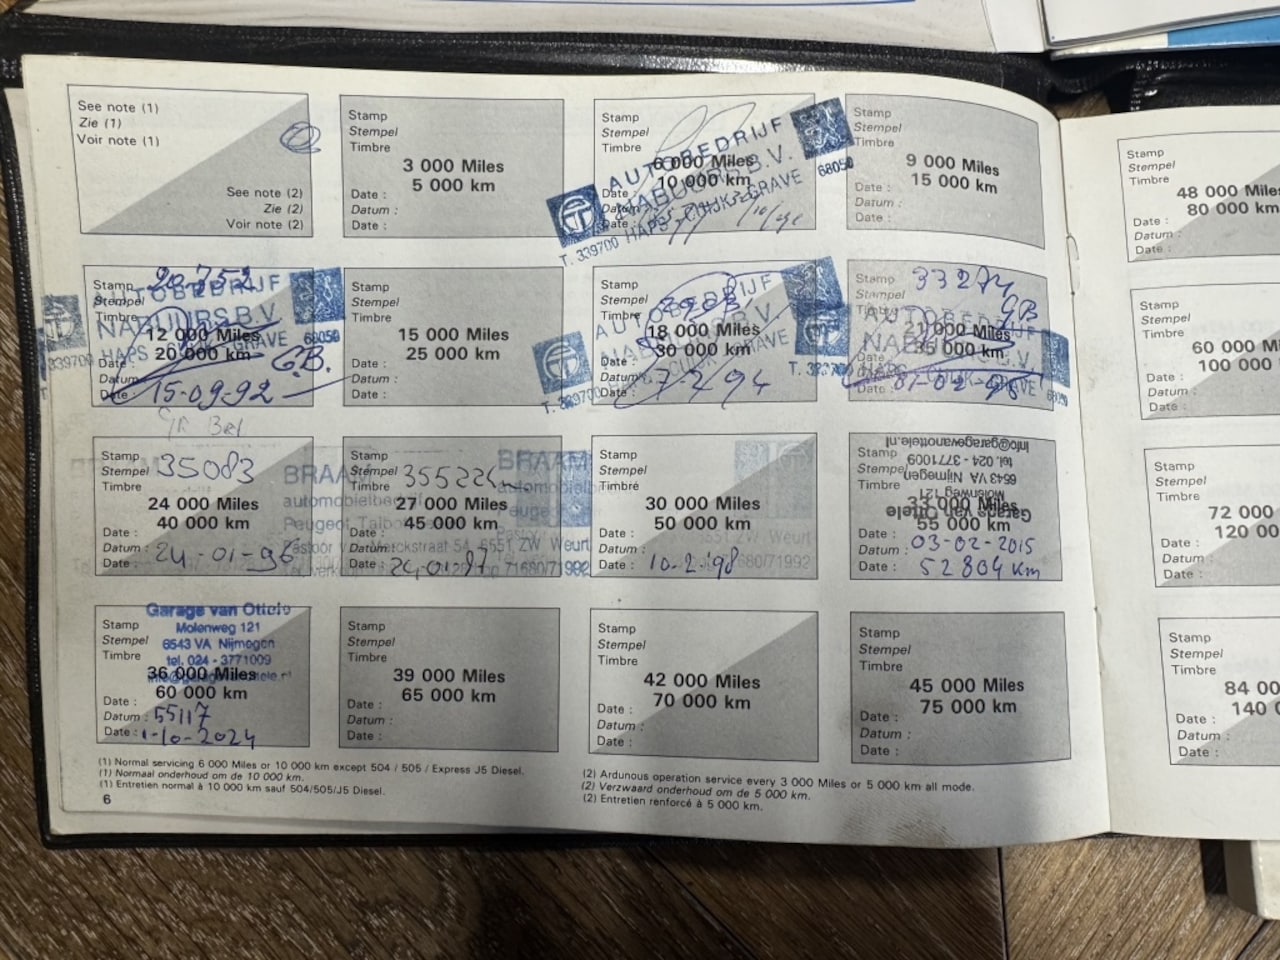 See note (1)
Zie (1)
Voir note (1)
See note (2)
Zie (2)
Voir note (2)
Stamp
Stempel
Timbre
3 000 Miles
5 000 km
Date :
Datum :
Date :
Stamp
Stempel
Timbre
6 000 Miles
10 000 km
Date
AUTOBEDRIJF
NABUURS B.V.
HAPS - CUIJK - GRAVE
T. 339700
68050
Stamp
Stempel
Timbre
9 000 Miles
15 000 km
Date :
Datum :
Date :
Stamp
Stempel
Timbre
12 000 Miles
20 000 km
Date :
Datum
Date :
AUTOBEDRIJF
NABUURS B.V.
HAPS GRAVE 68050
339700
20.752
G.B.
15-09-92
Stamp
Stempel
Timbre
15 000 Miles
25 000 km
Date :
Datum :
Date :
Stamp
Stempel
Timbre
18 000 Miles
30 000 km
Date :
Datum
Date :
AUTOBEDRIJF
7-2-94
Stamp
Stempel
Timbre
21 000 Miles
35 000 km
Date
33274
G.B.
Stamp
Stempel
Timbre
35083
24 000 Miles
40 000 km
Date :
Datum :
Date :
24-01-96
Stamp
Stempel
Timbre
27 000 Miles
45 000 km
Date :
Datum :
Date :
BRAAM
automobielbedrijf
Peugeot Talbot
6551 ZW Weurt
71680/71992
Stamp
Stempel
Timbre
30 000 Miles
50 000 km
Date :
Datum :
Date : 10-2-'98
BRAAM
Stamp
Stempel
Timbre
33 000 Miles
55 000 km
Date :
Datum : 03-02-2015
Date : 52804 km
Garage van Ottele
Molenweg 121
6543 VA Nijmegen
tel. 024 - 3771009
info@garagevanottele.nl
Garage van Ottele
Molenweg 121
6543 VA Nijmegen
tel. 024 - 3771009
Stamp
Stempel
Timbre
36 000 Miles
60 000 km
Date :
Datum : 55117
Date : 1-10-2024
Stamp
Stempel
Timbre
39 000 Miles
65 000 km
Date :
Datum :
Date :
Stamp
Stempel
Timbre
42 000 Miles
70 000 km
Date :
Datum :
Date :
Stamp
Stempel
Timbre
45 000 Miles
75 000 km
Date :
Datum :
Date :
(1) Normal servicing 6 000 Miles or 10 000 km except 504 / 505 / Express J5 Diesel.
(1) Normaal onderhoud om de 10 000 km.
(1) Entretien normal à 10 000 km sauf 504/505/J5 Diesel.
(2) Ardunous operation service every 3 000 Miles or 5 000 km all mode.
(2) Verzwaard onderhoud om de 5 000 km.
(2) Entretien renforcé à 5 000 km.
6
Stamp
Stempel
Timbre
48 000 Miles
80 000 km
Date :
Datum :
Date :
Stamp
Stempel
Timbre
60 000
100 000
Date :
Datum :
Date :
Stamp
Stempel
Timbre
72 000
120 00
Date :
Datum :
Date :
Stamp
Stempel
Timbre
84 00
140 0
Date :
Datum :
Date :